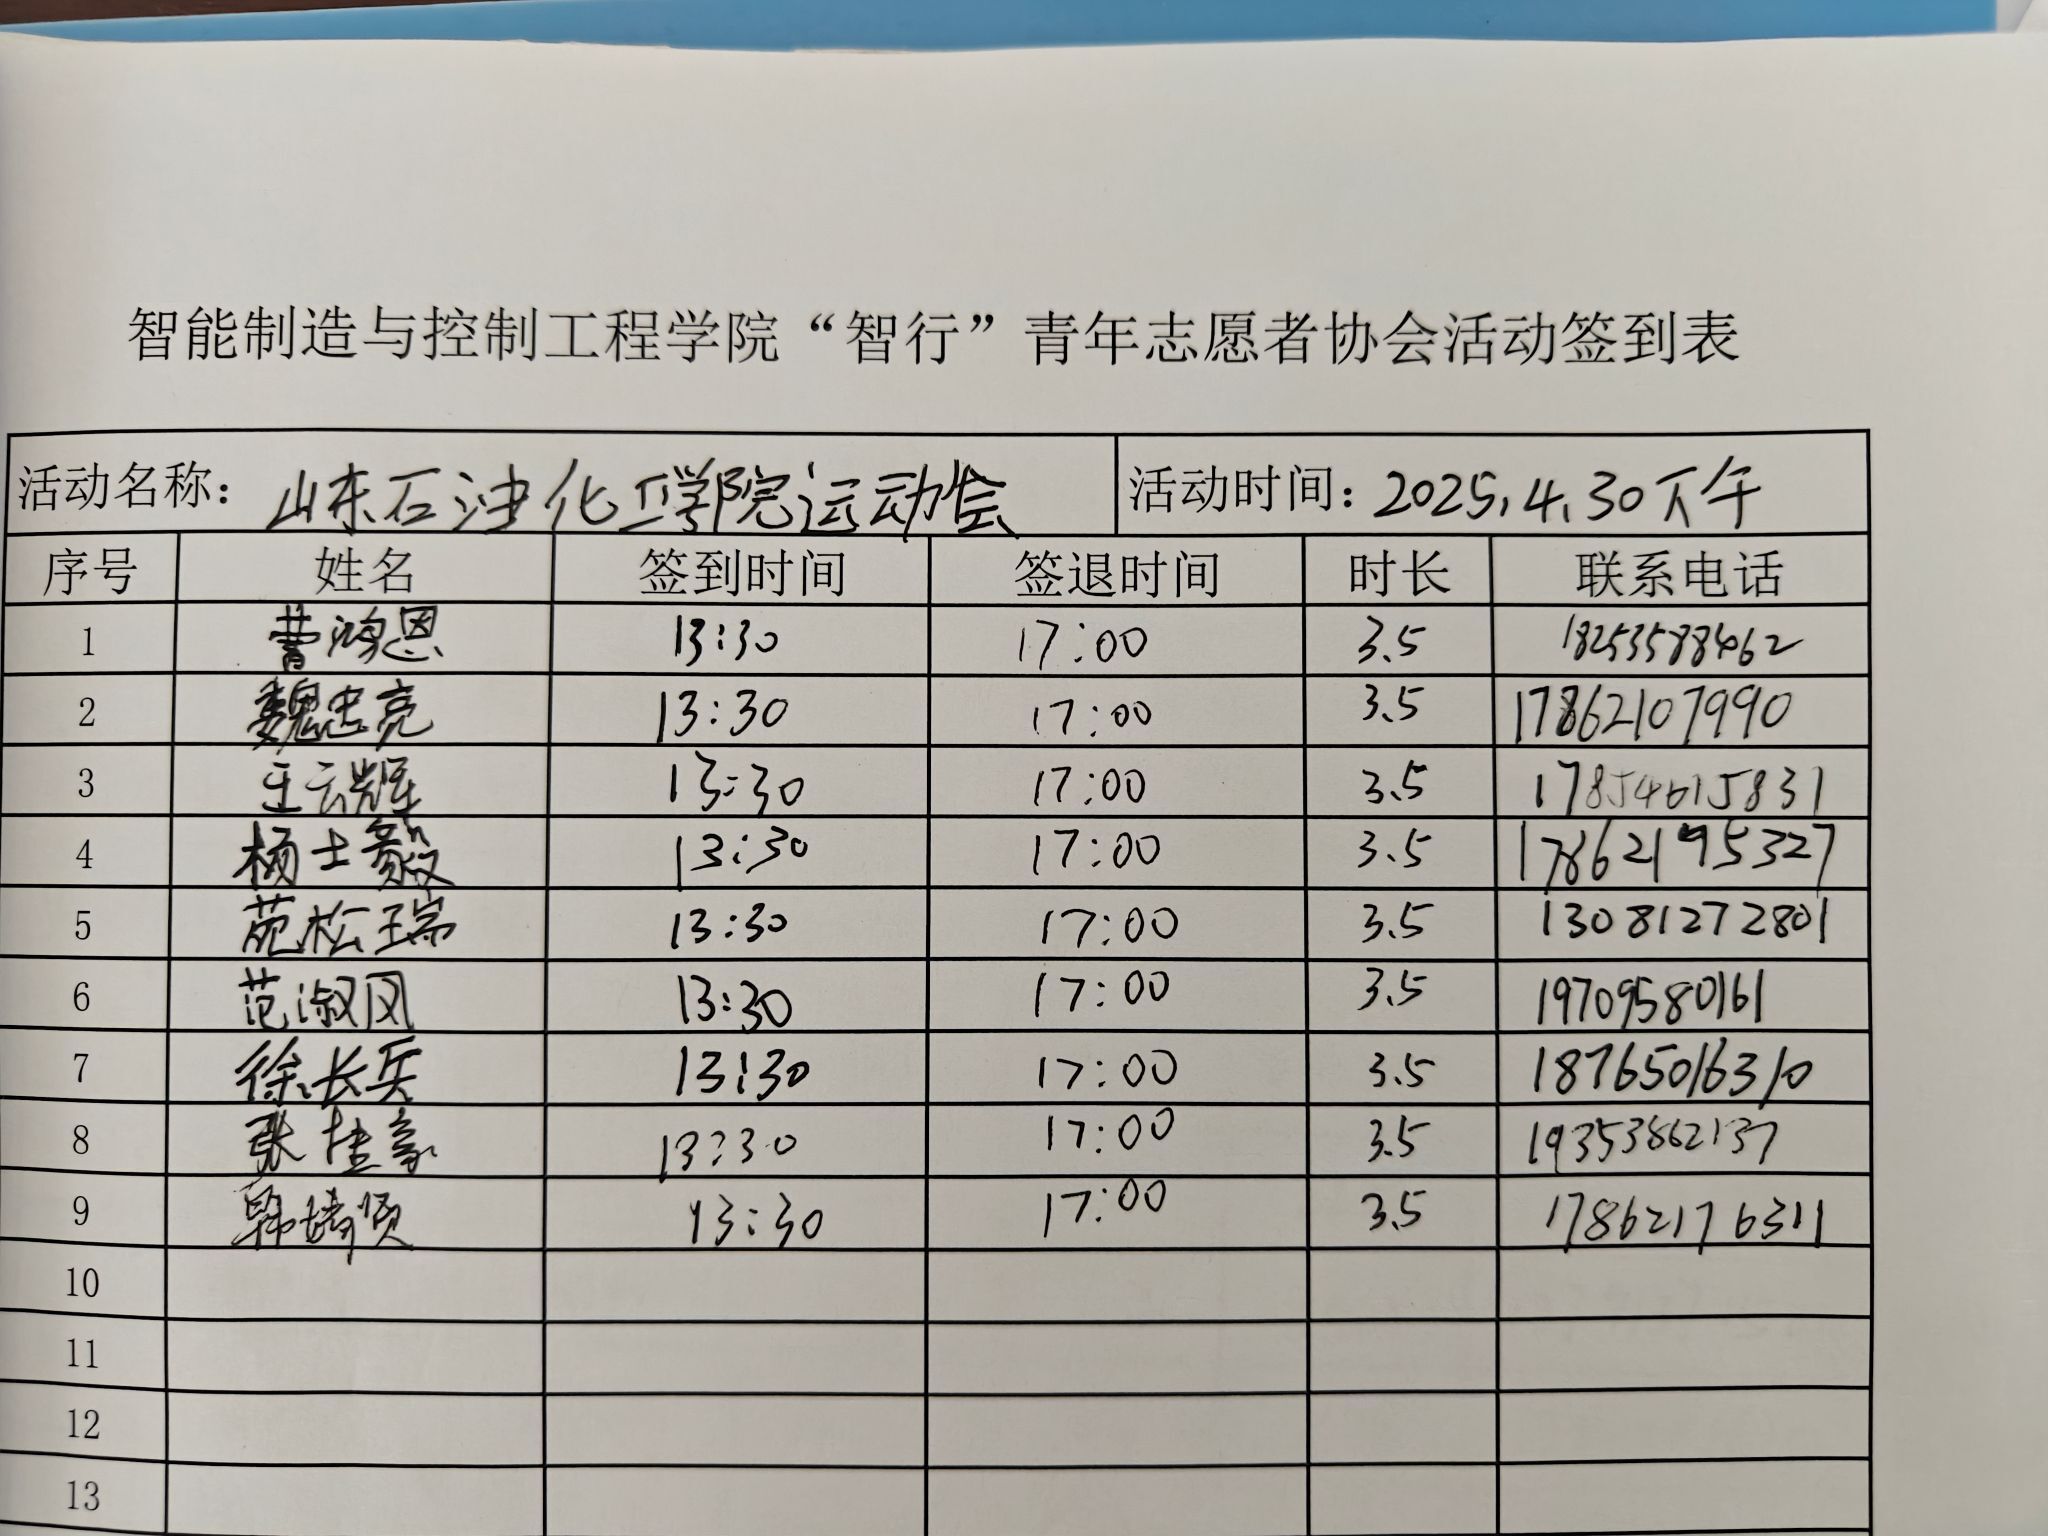 智能制造与控制工程学院“智行”青年志愿者协会活动签到表
活动名称：山东石油化工学院运动会 活动时间：2025.4.30下午
序号 姓名 签到时间 签退时间 时长 联系电话
1 曹鸿恩 13:30 17:00 3.5 18253588462
2 魏忠亮 13:30 17:00 3.5 17862107990
3 王云辉 13:30 17:00 3.5 17854615831
4 杨士毅 13:30 17:00 3.5 17862195327
5 苑松瑞 13:30 17:00 3.5 13081272801
6 范淑凤 13:30 17:00 3.5 19709580161
7 徐长兵 13:30 17:00 3.5 18765016310
8 张桂豪 13:30 17:00 3.5 19353862137
9 13:30 17:00 3.5 17862176311
10
11
12
13